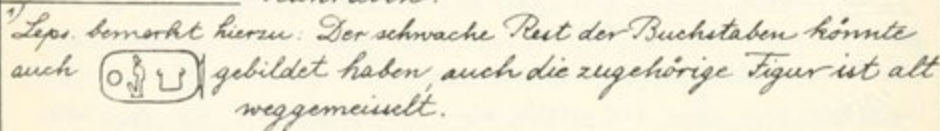 1) Leps. bemerkt hierzu: Der schwache Rest der Buchstaben könnte
auch gebildet haben, auch die zugehörige Figur ist alt
weggemeisselt.